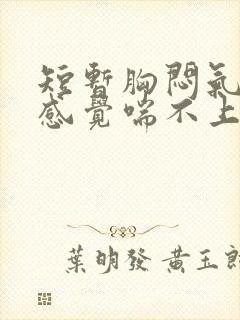 短暫胸悶氣
感覺喘不上
葉明發 黃玉郎